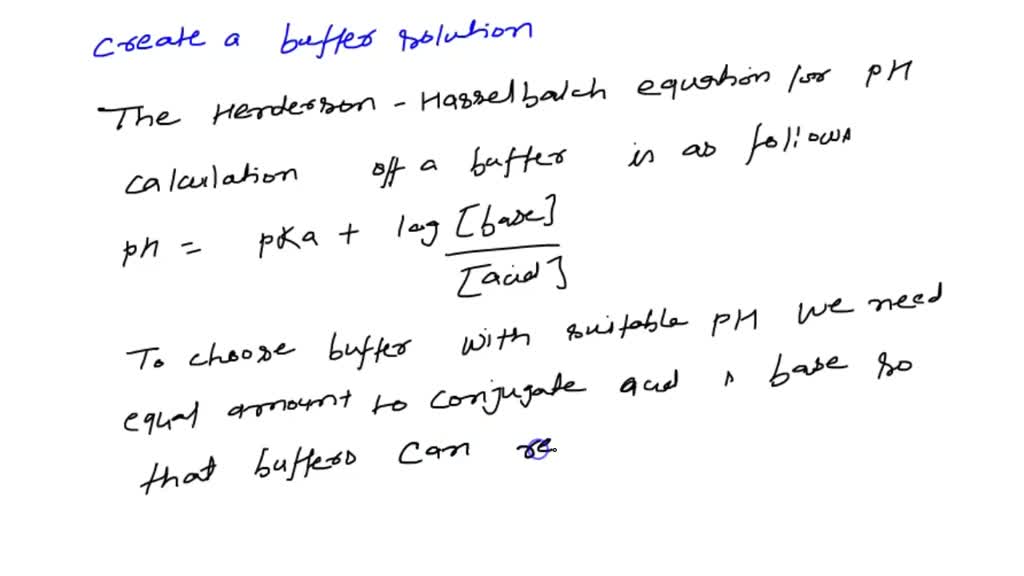 create a buffer solution
The Henderson-Hasselbalch equation for pH
calculation off a buffer is as follows
pH = pKa + log [base]
[acid]
To choose buffer with suitable pH we need
equal amount to conjugate acid & base so
that buffers can re